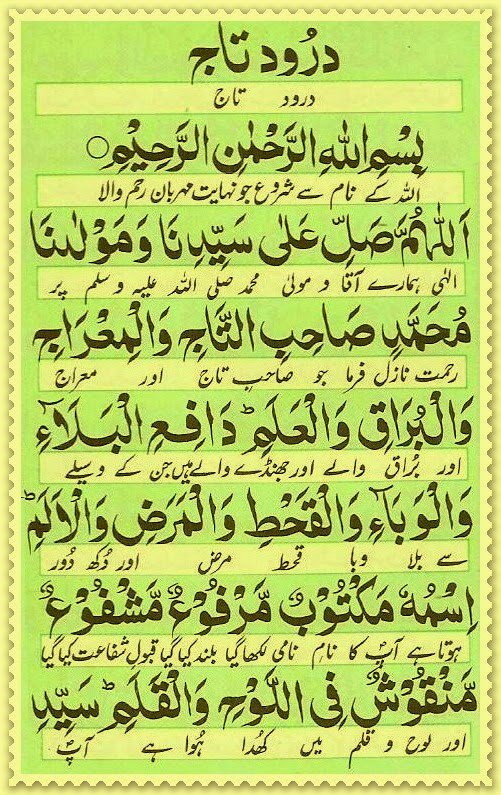 دُرُود تاج
درود تاج
بِسْمِ اللهِ الرَّحْمٰنِ الرَّحِيْمِ ○
اللہ کے نام سے شروع جو نہایت مہربان رحم والا
اَللّٰهُمَّ صَلِّ عَلٰى سَيِّدِنَا وَمَوْلٰىنَا
الٰہی ہمارے آقا و مولیٰ محمد صلی اللہ علیہ وسلم پر
مُحَمَّدٍ صَاحِبِ التَّاجِ وَالْمِعْرَاجِ
رحمت نازل فرما جو صاحب تاج اور معراج
وَالْبُرَاقِ وَالْعَلَمِ ؕ دَافِعِ الْبَلَآءِ
اور بُراق والے اور جھنڈے والے ہیں جن کے وسیلے
وَالْوَبَآءِ وَالْقَحْطِ وَالْمَرَضِ وَالْاَلَمِ ؕ
سے بلا وبا قحط مرض اور دُکھ دُور
اِسْمُهٗ مَكْتُوْبٌ مَّرْفُوْعٌ مَّشْفُوْعٌ
ہوتا ہے آپؐ کا نام نامی لکھا گیا بلند کیا گیا قبول شفاعت کیا گیا
مَّنْقُوْشٌ فِى اللَّوْحِ وَالْقَلَمِ ؕ سَيِّدِ
اور لوح و قلم میں کھدا ہُوا ہے آپؐ